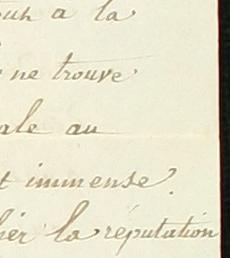 à la
ne trouve
ale au
t immense.
la réputation